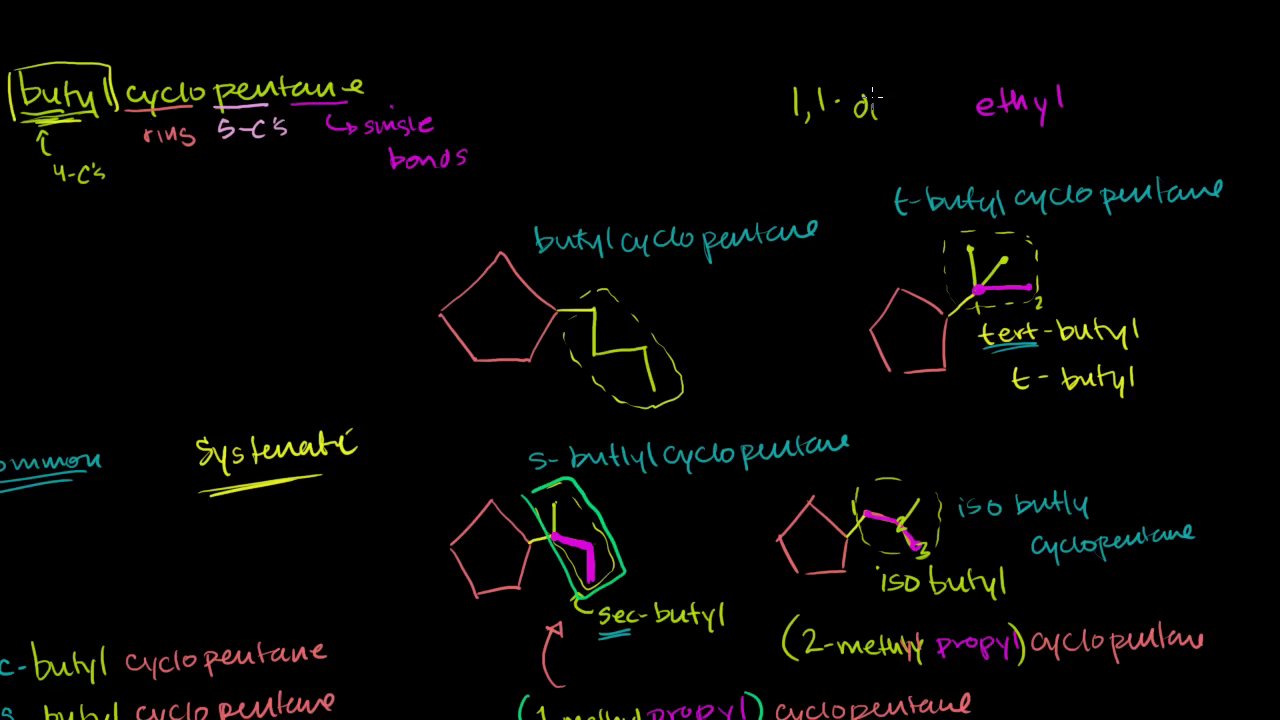 butyl cyclo pentane
ring 5-C's single
bonds
4-C's
1,1-di ethyl
t-butyl cyclo pentane
butyl cyclo pentane
2
tert-butyl
t-butyl
ommon Systematic
s-butlyl cyclo pentane
1 2 3
iso butly
cyclopentane
iso butyl
sec-butyl
(2-methyl propyl) cyclopentane
c-butyl cyclo pentane
s butyl cyclo pentane
(1 methyl propyl) cyclopentane